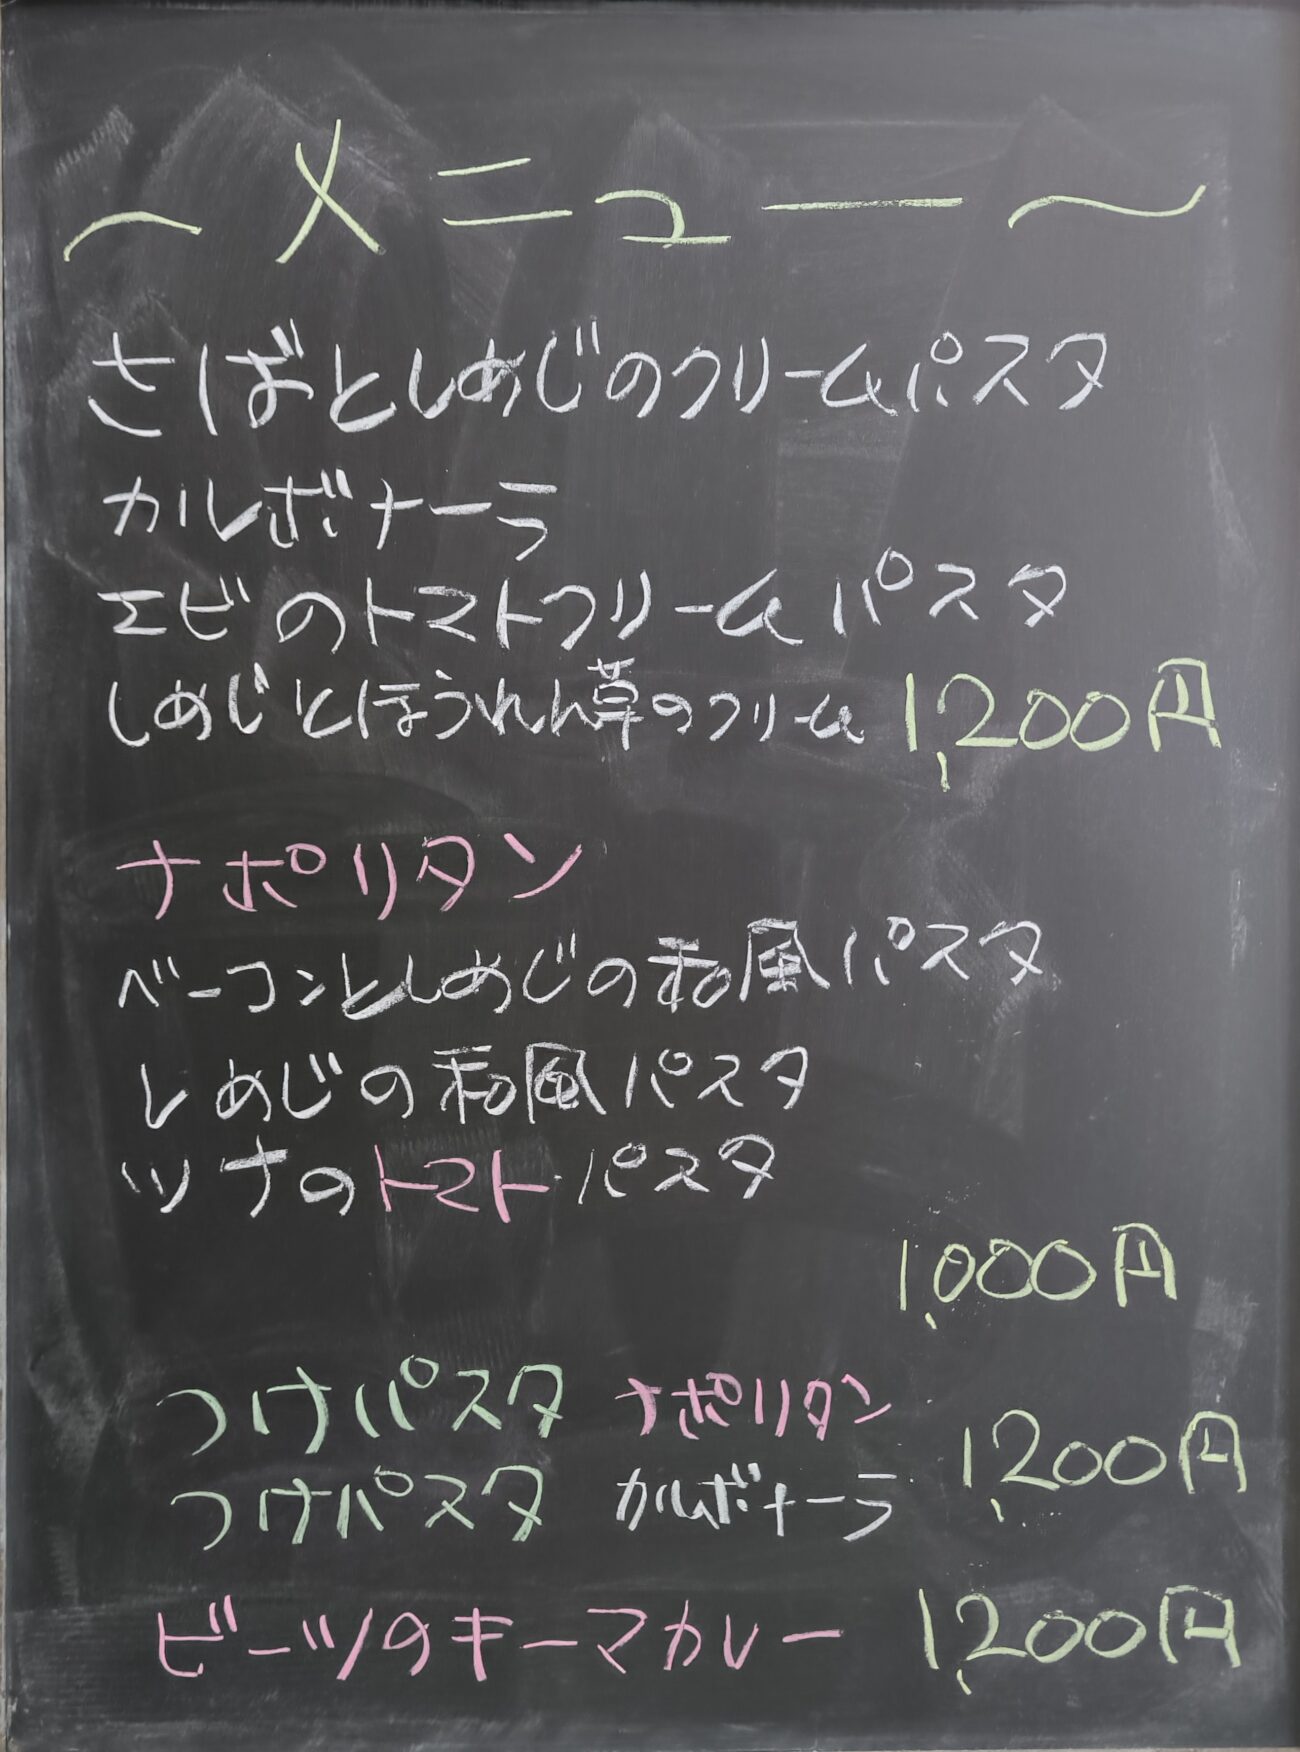 ～メニュー～
さばとしめじのクリームパスタ
カルボナーラ
エビのトマトクリームパスタ
しめじとほうれん草のクリーム 1,200円
ナポリタン
ベーコンとしめじの和風パスタ
しめじの和風パスタ
ツナのトマトパスタ
1,000円
つけパスタ ナポリタン
つけパスタ カルボナーラ 1,200円
ビーツのキーマカレー 1,200円